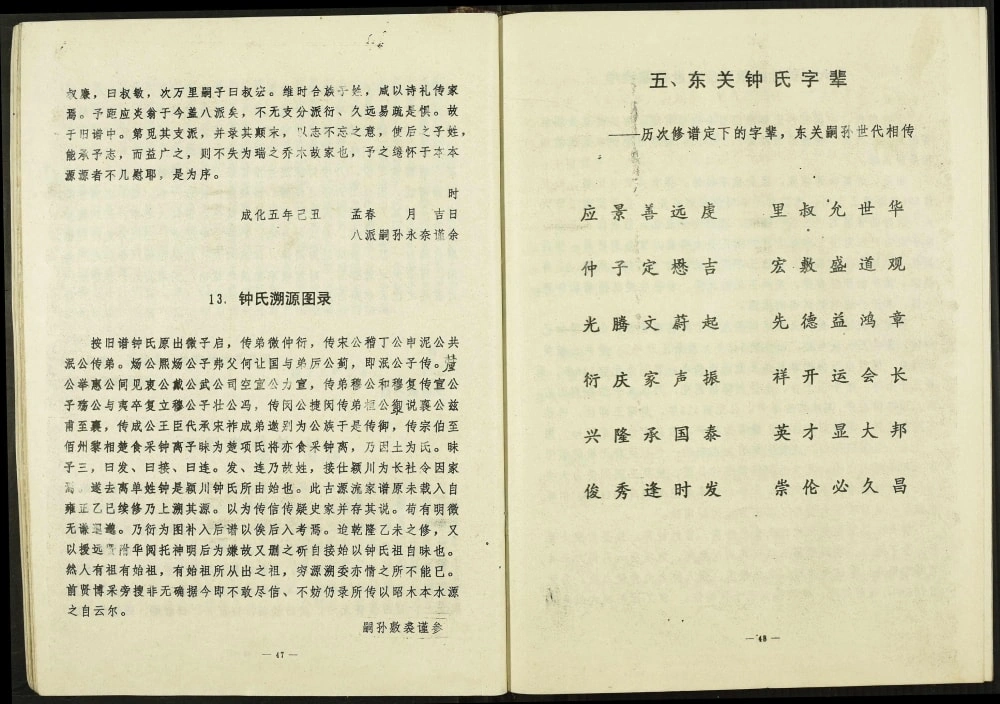 叔廉，曰叔敏，次万里嗣子曰叔宏。维时合族子姓，咸以诗礼传家
焉。予距应炎翁于今盖八派矣，不无支分派衍、久远易疏是惧。故
于旧谱中。第觅其支派，并录其颠末，以志不忘之意，使后之子姓，
能承予志，而益广之，则不失为瑞之乔木故家也，予之惓怀于本本
源源者不几慰耶，是为序。
时
成化五年己丑 孟春 月 吉日
八派嗣孙永奈谨余
13. 钟氏溯源图录
按旧谱钟氏原出微子启，传弟微仲衍，传宋公稽丁公申泥公共
泯公传弟。炀公熙炀子弗父何让国与弟厉公蓟，即泯公子传。
公举惠公间见衷公戴公武公司空宣公力宣，传弟穆公和穆复传宣公
子殇公与夷卒复立穆公子壮公冯，传闵公捷闵传弟桓公御说襄公兹
甫至襄，传成公王臣代承宋祚成弟遨别为公族于是传御，传宗伯至
佰州黎相楚食采钟离子昧为楚项氏将亦食采钟离，乃因土为氏。昧
子三，曰发、曰接、曰连。发、连乃故姓，接仕颖川为长社令因家
焉。遂去离单姓钟是颖川钟氏所由始也。此古源流家谱原未载入自
雍正乙已续修乃上溯其源。以为传信传疑史家并存其说。苟有明微
无谦遐邈。乃衍为图补入后谱以俟后入考焉。迨乾隆乙未之修，又
以援远晋附华阀托神明后为嫌故又删之斫自接始以钟氏祖自昧也。
然人有祖有始祖，有始祖所从出之祖，穷源溯委亦情之所不能已。
前贤博采旁搜非无确据今即不敢尽信、不妨仍录所传以昭木本水源
之自云尔。
嗣孙敷裘谨参
— 47 —
五、东关钟氏字辈
——历次修谱定下的字辈，东关嗣孙世代相传
应景善远虔 里叔允世华
仲子定懋吉 宏敷盛道观
光腾文蔚起 先德益鸿章
衍庆家声振 祥开运会长
兴隆承国泰 英才显大邦
俊秀逢时发 崇伦必久昌
— 48 —